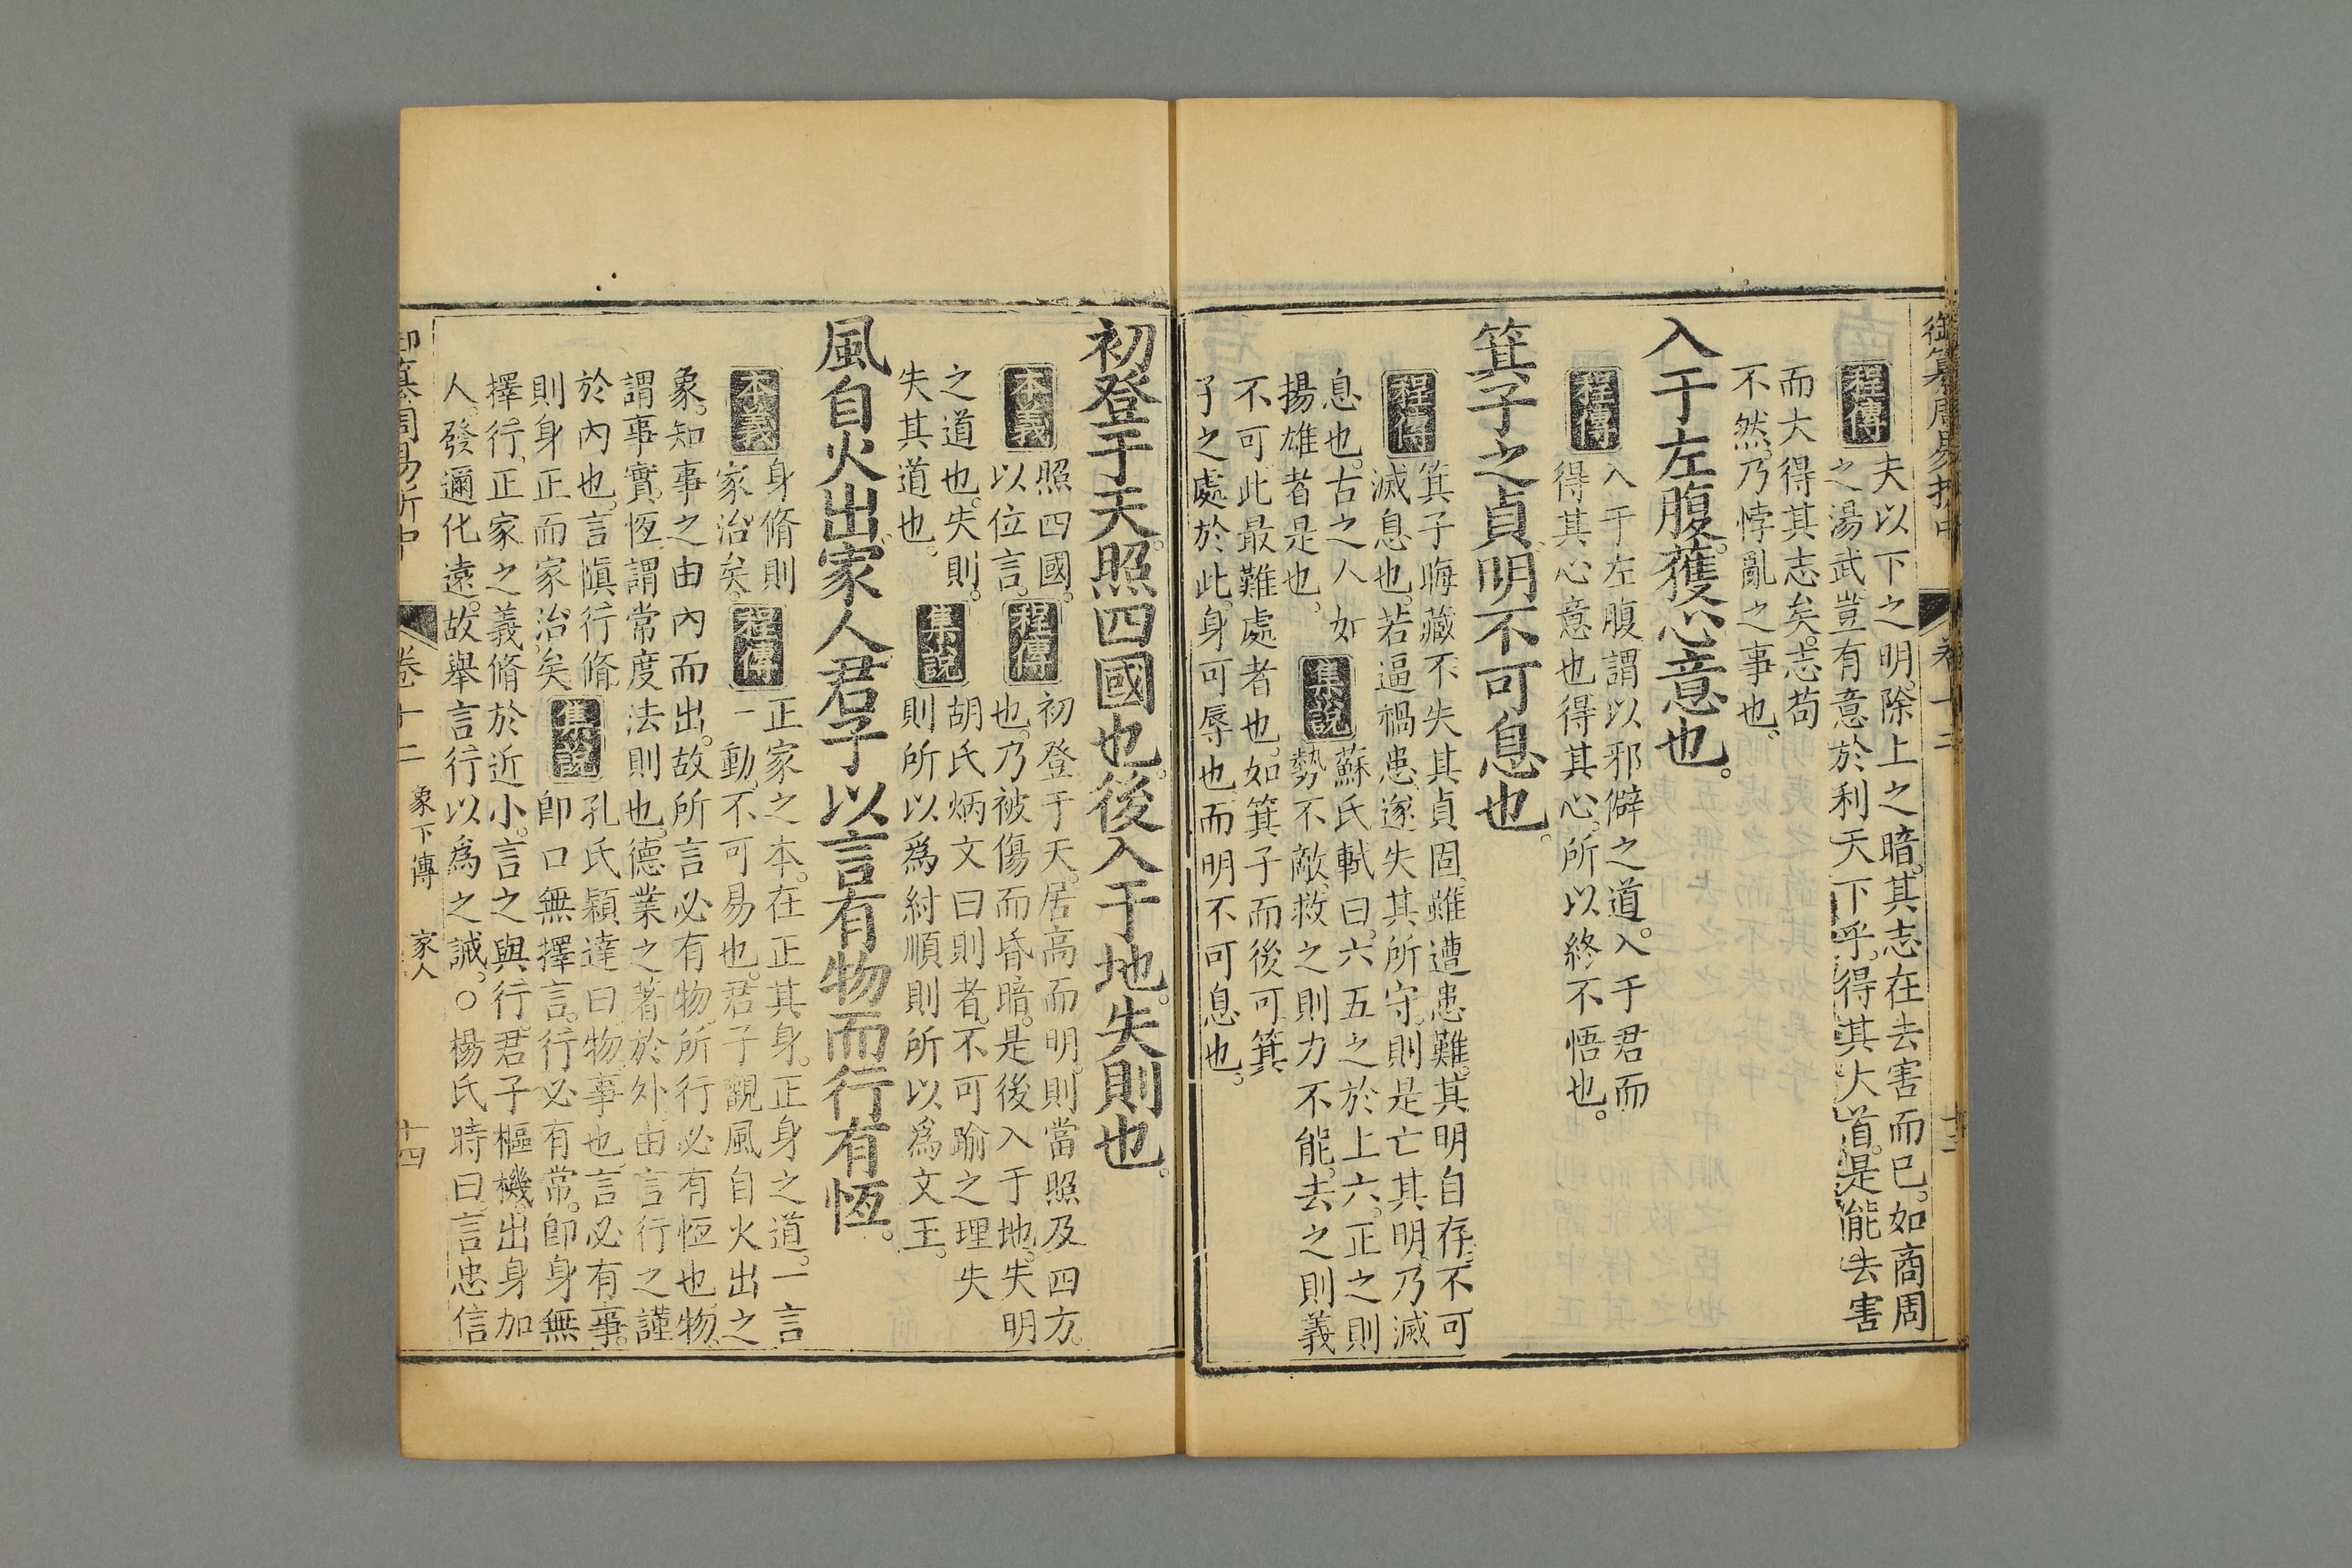 御纂周易折中 卷十二 十三
程傳 夫以下之明。除上之暗。其志在去害而已。如商周
之湯武豈有意於利天下乎。得其大道。是能去害
而大得其志矣。志苟
不然。乃悖亂之事也。
入于左腹。獲心意也。
程傳 入于左腹謂以邪僻之道。入于君而
得其心意也得其心。所以終不悟也。
箕子之貞。明不可息也。
程傳 箕子晦藏不失其貞固。雖遭患難。其明自存。不可
滅息也。若逼禍患。遂失其所守。則是亡其明。乃滅
息也。古之人如
揚雄者是也。
集說 蘇氏軾曰。六五之於上六。正之則
勢不敵。救之則力不能。去之則義
不可。此最難處者也。如箕子而後可。箕
子之處於此。身可辱也。而明不可息也。
初登于天。照四國也。後入于地。失則也。
本義 照四國。
以位言。
程傳 初登于天。居高而明。則當照及四方。
也。乃被傷而昏暗。是後入于地。失明
之道也。失則。
失其道也。
集說 胡氏炳文曰則者。不可踰之理失
則所以爲紂順則所以爲文王。
風自火出家人。君子以言有物而行有恆。
本義 身脩則
家治矣。
程傳 正家之本。在正其身。正身之道。一言
一動。不可易也。君子觀風自火出之
象。知事之由內而出。故所言必有物。所行必有恆也物。
謂事實。恆謂常度法則也。德業之著於外。由言行之謹
於內也。言愼行脩。
則身正而家治矣。
集說 孔氏穎達曰。物。事也。言必有事。
卽口無擇言。行必有常。卽身無
擇行。正家之義脩於近小。言之與行。君子樞機。出身加
人。發邇化遠。故舉言行以爲之誡。○楊氏時曰。言忠信
御纂周易折中 卷十二 象下傳 家人 十四